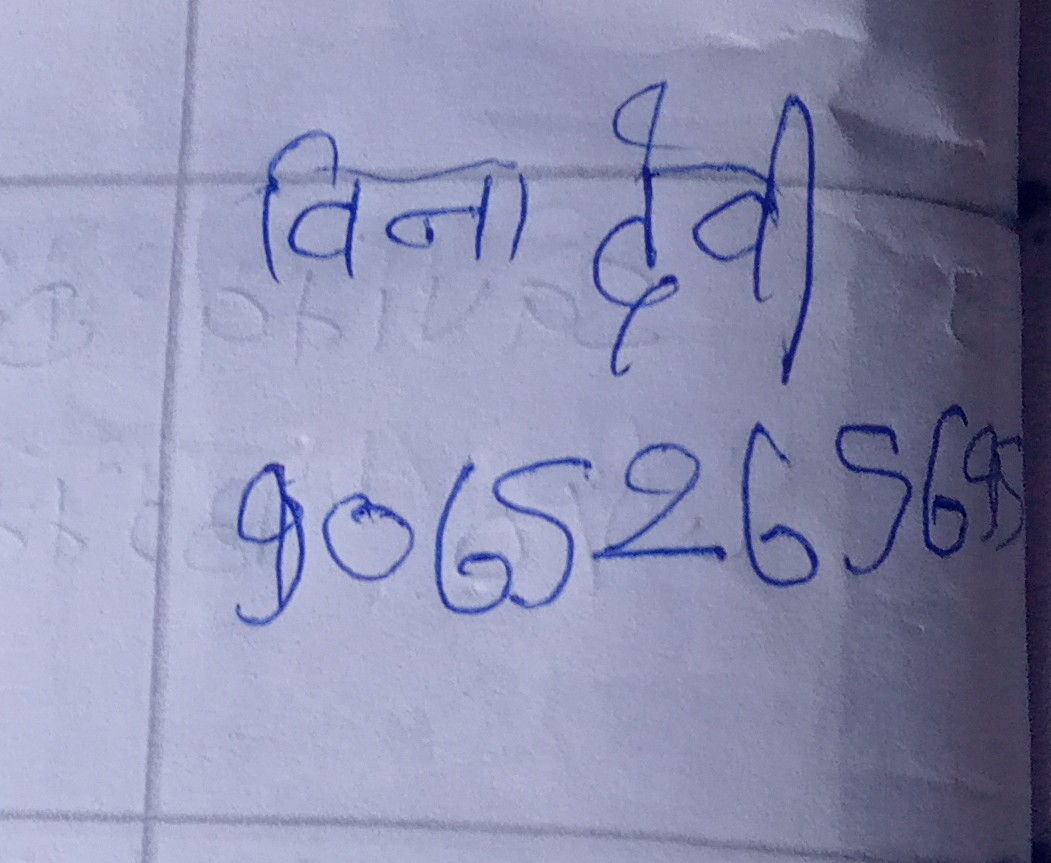 विना देवी
9065265695